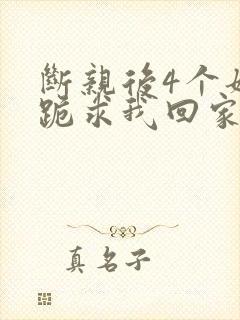 斷親後4个
跪求我回家
真名子